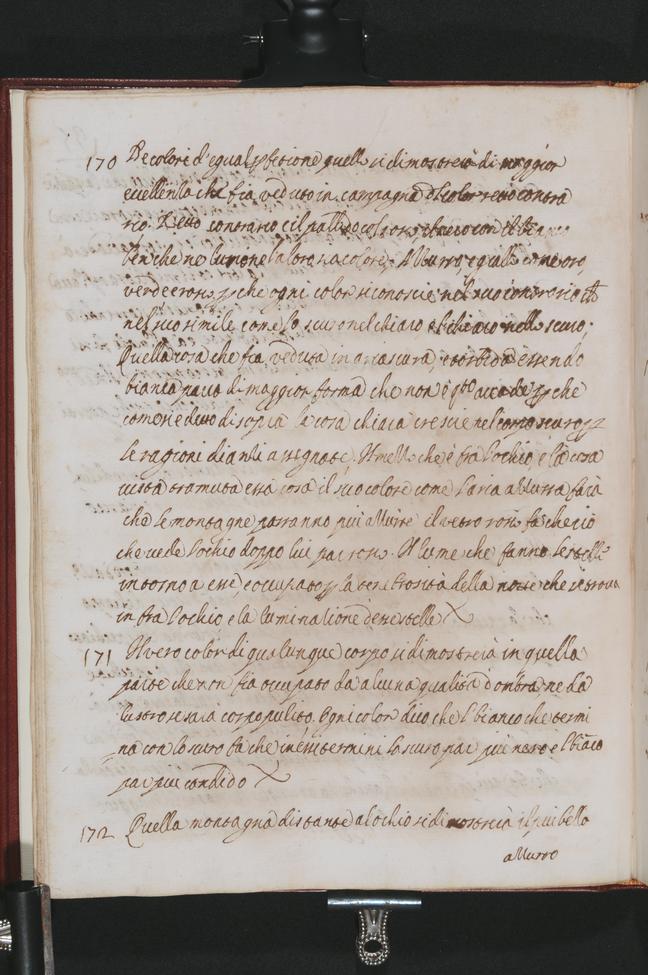 170 De colori d'egual perfetione quello si dimostrerà di maggior
eccellentia che fia veduto in campagna del color retto contra
rio. Retto contrario è il pallido col rosso, il nero con il bianco
ben che ne l'uno ne l'altro sia colore, Azzurro, e giallo come oro,
verde e rosso, perche ogni color si conosce nel suo contrario che
nel suo simile come lo scuro nel chiaro, el chiaro nello scuro;
Quella cosa che fia veduta in aria scura, e torbida essendo
bianca parrà di maggior forma che non è, questo accade perche
come è detto di sopra la cosa chiara cresce nel campo scuro per
le ragioni dianti assignate. Il mezzo che è fra l'ochio, e la cosa
vista tramuta essa cosa il suo colore come l'aria azzurra farà
che le montagne parranno più azzurre il vetro rosso fa che ciò
che vede l'ochio doppo lui par rosso. Il lume che fanno le stelle
intorno a esse, e occupato per la tenebrosità della notte che si trova
in fra l'ochio e la luminatione d'esse stelle
171 Il vero color di qualunque corpo si dimostrerà in quella
parte che non fia occupato da alcuna qualità d'ombra ne da
lustro se sarà corpo pulito. Ogni color dico che l'bianco che termi
na con lo scuro fa che in essi termini lo scuro par più nero e l'biāco
par più candido
172 Quella montagna distante al ochio si dimostrerà il più bello
azzurro